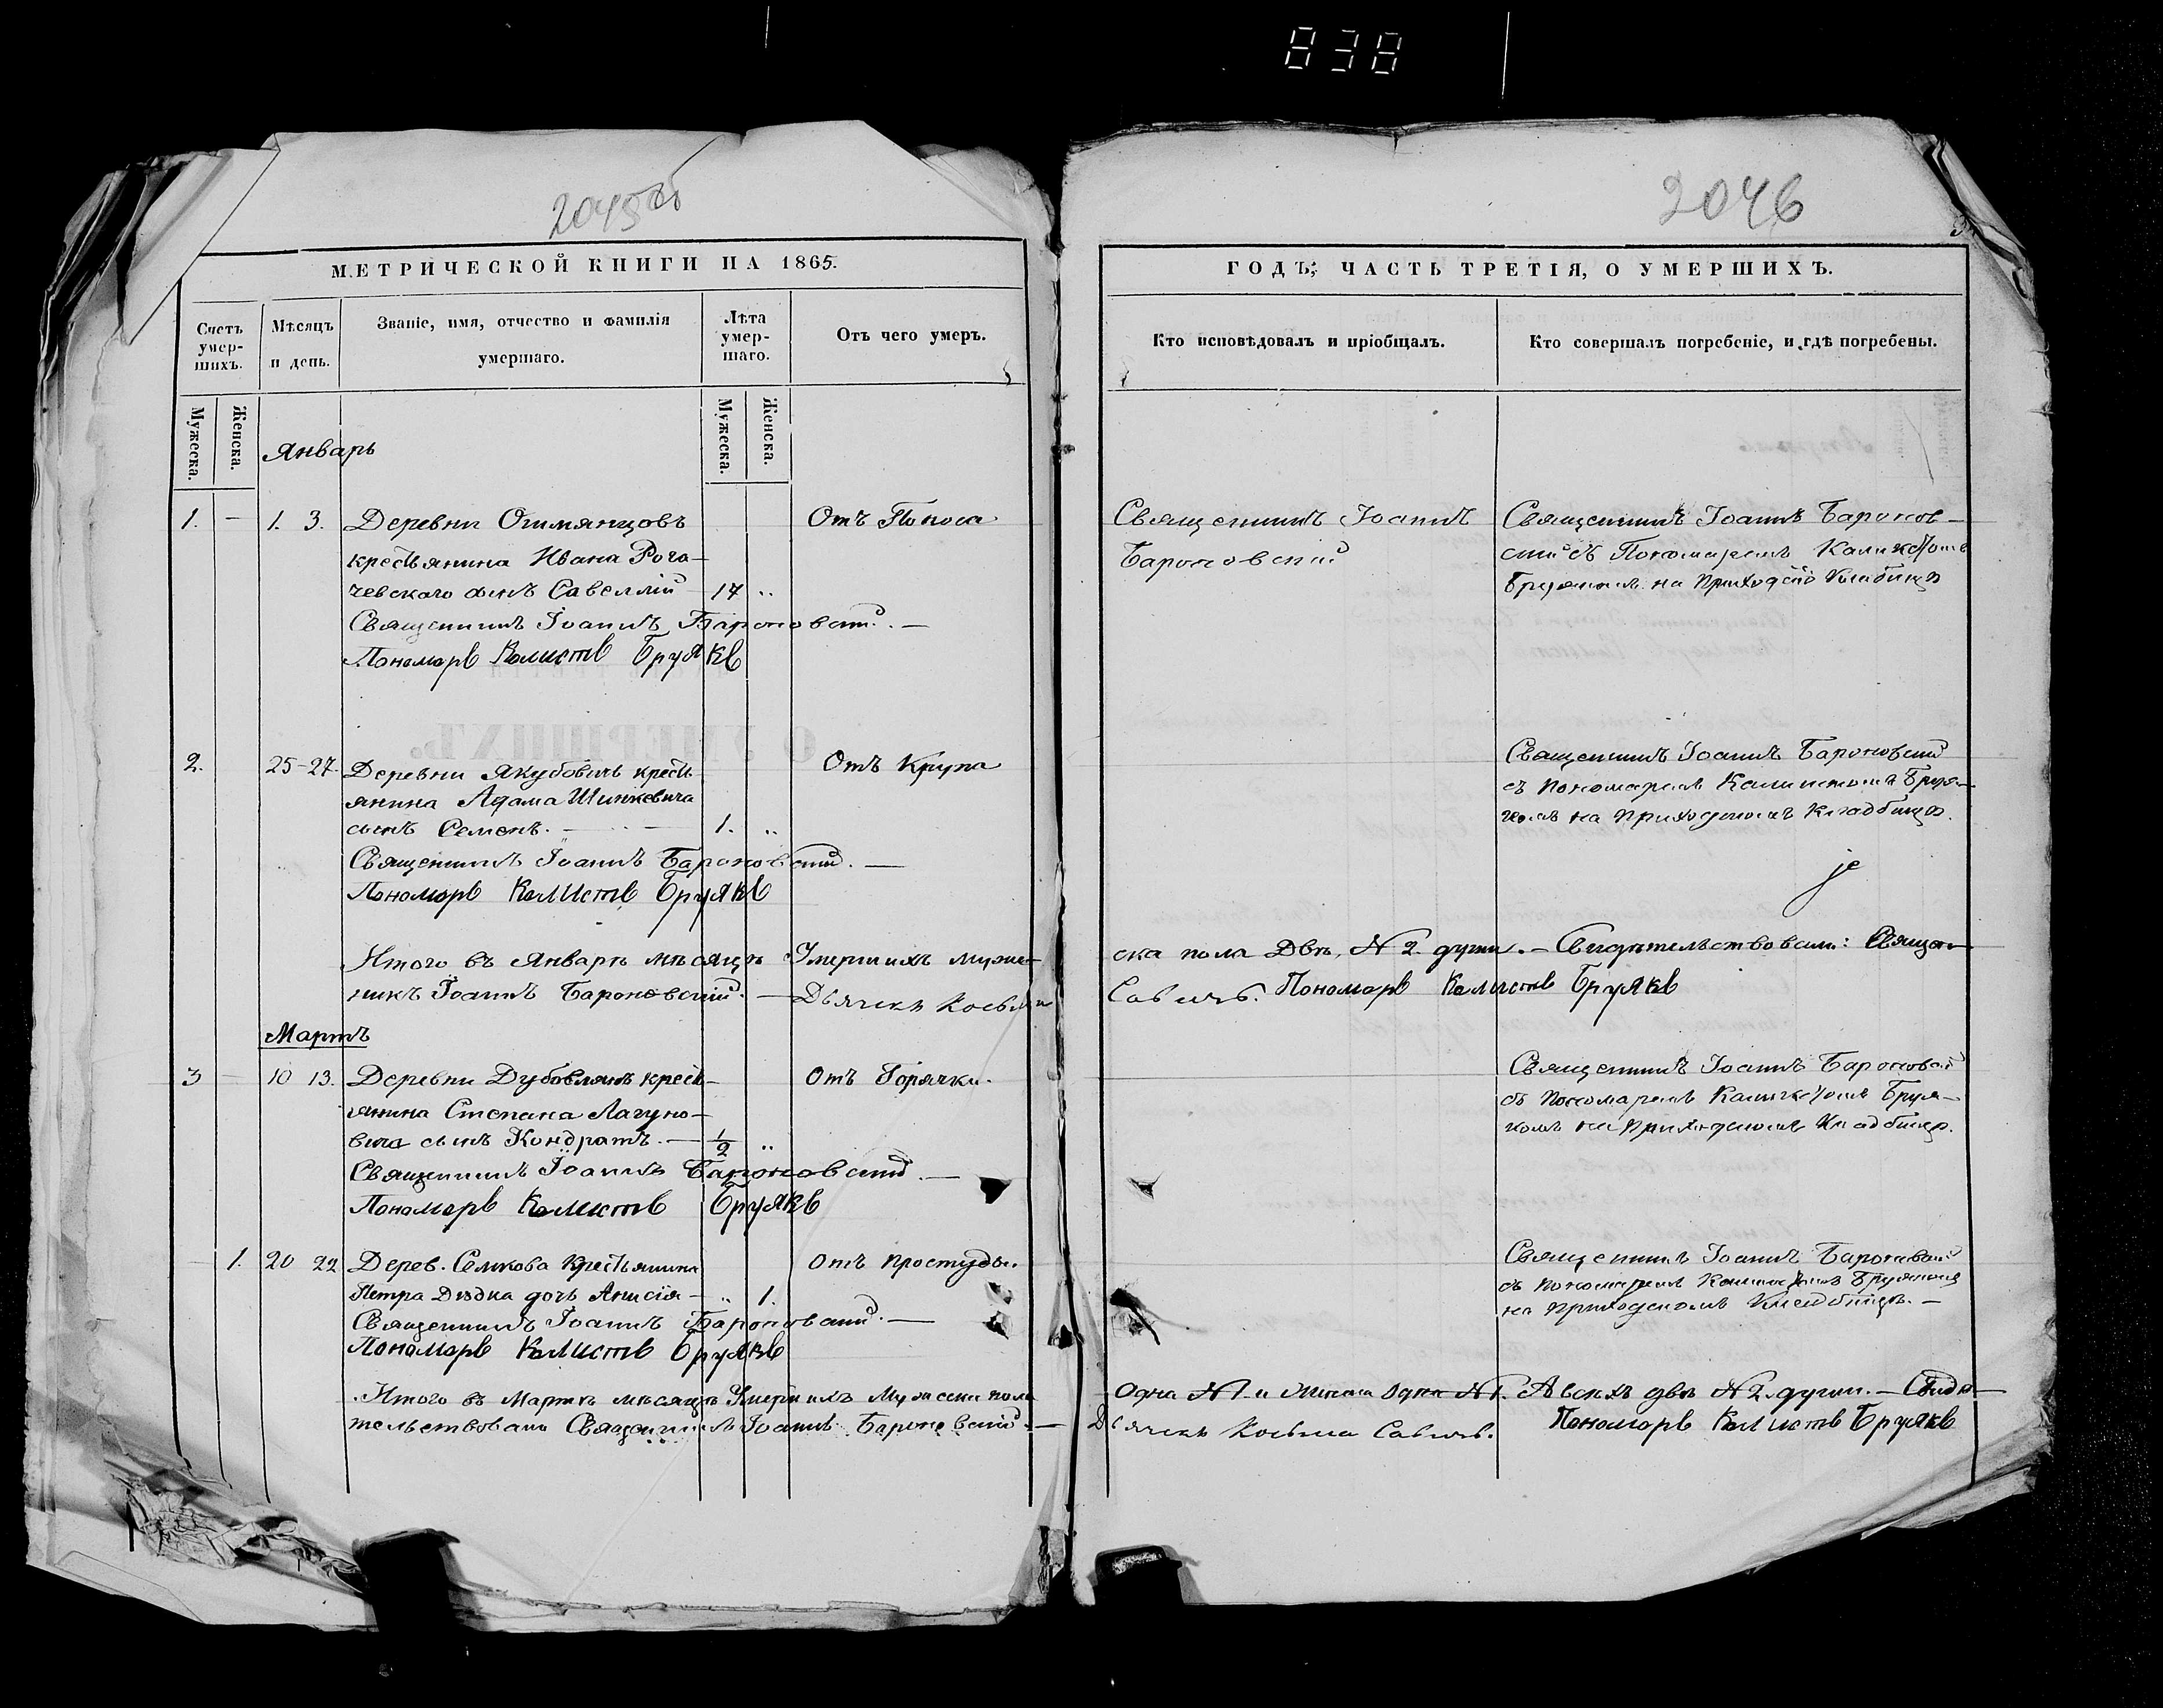 838
2045 об
2046
МЕТРИЧЕСКОЙ КНИГИ НА 1865.
Счетъ умер-шихъ.
Мѣсяцъ и день.
Званіе, имя, отчество и фамилія умершаго.
Лѣта умер-шаго.
Отъ чего умеръ.
Мужеска.
Женска.
Мужеска.
Женска.
Январь
1. - 1. 3. Деревни Огимянцовъ Отъ Поноса
крестьянина Ивана Рога-
чевскаго сынъ Савеллій 17 "
Священникъ Іоаннъ Бароновскій. —
Пономарь Калистъ Брукякъ
2. 25-27. Деревни Якубовичъ кресть Отъ Крупа
янина Адама Шинкевича
сынъ Семенъ. — 1. "
Священникъ Іоаннъ Бароновскій. —
Пономарь Калистъ Бруякъ
Итого въ Январѣ мѣсяцѣ Умершихъ муже-
никъ Іоаннъ Бароновскій. — Дьячекъ Косьма
Мартъ
3 - 10 13. Деревни Дубовлянъ кресть- Отъ Горячки.
янина Степана Лагуно-
вича сынъ Кондратъ. — 1/2 "
Священникъ Іоаннъ Бароновскій. —
Пономарь Калистъ Бруякъ
- 1. 20 22 Дерев. Семкова Крестьянина Отъ простуды.
Петра Дѣдка дочь Анисія — " 1.
Священникъ Іоаннъ Бароновскій. —
Пономарь Калистъ Бруякъ
Итого въ Мартѣ мѣсяцѣ Умершихъ Мужеска пола
тельствовали Священникъ Іоаннъ Бароновскій. —
ГОДЪ; ЧАСТЬ ТРЕТІЯ, О УМЕРШИХЪ.
Кто исповѣдовалъ и пріобщалъ.
Кто совершалъ погребеніе, и гдѣ погребены.
Священникъ Іоаннъ
Бароновскій
Священникъ Іоаннъ Баронов-
скій съ Пономаремъ Каликстомъ
Бруякомъ на Приходскомъ Кладбищѣ
Священникъ Іоаннъ Бароновскій
съ пономаремъ Каликстомъ Бруя-
комъ на приходскомъ кладбищѣ.
ска пола Двѣ, N 2. души. — Свидѣтельствовали: Священ-
Савичъ. Пономарь Калистъ Бруякъ
Священникъ Іоаннъ Бароновскій
съ пономаремъ Каликстомъ Бруя-
комъ на приходскомъ Кладбищѣ.
Священникъ Іоаннъ Бароновскій
съ пономаремъ Каликстомъ Бруякомъ
на приходскомъ Кладбищѣ. —
Одна N 1. и Женска Одна N 1. А всехъ двѣ N 2. души. — Свидѣ-
Дьячекъ Косьма Савичъ. Пономарь Калистъ Бруякъ